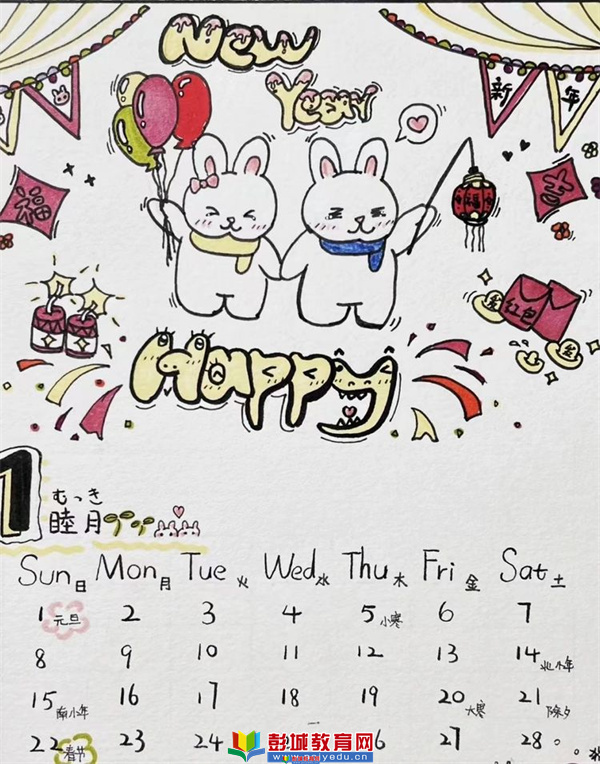 New
Year
新 年
福 福 吉
红包
Happy
1 むつき
睦月
Sun日 Mon月 Tue火 Wed水 Thu木 Fri金 Sat土
1元旦 2 3 4 5小寒 6 7
8 9 10 11 12 13 14北小年
15南小年 16 17 18 19 20大寒 21除夕
22春节 23 24 27 28
彭城教育网